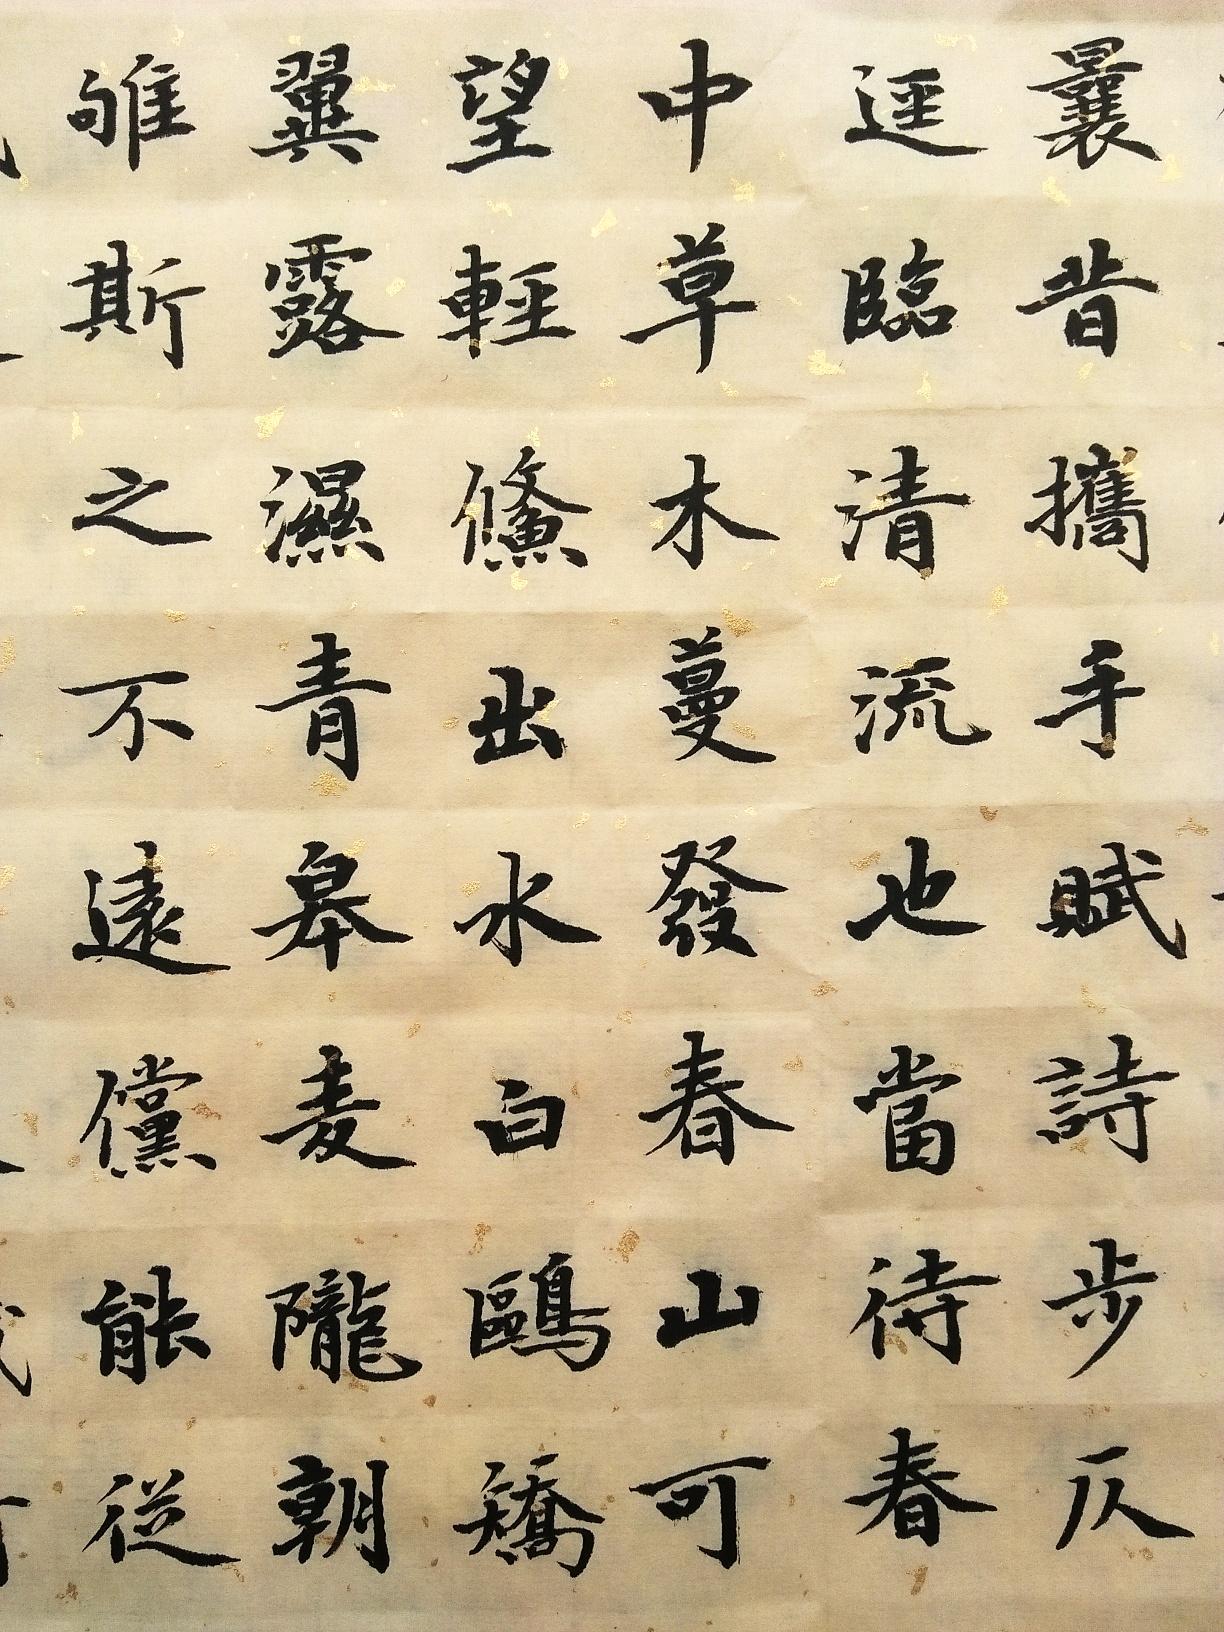 曩昔攜手賦詩步仄
逕臨清流也當待春
中草木蔓發春山可
望輕鯈出水白鷗矯
翼露濕青皋麦隴朝
雊斯之不遠儻能從